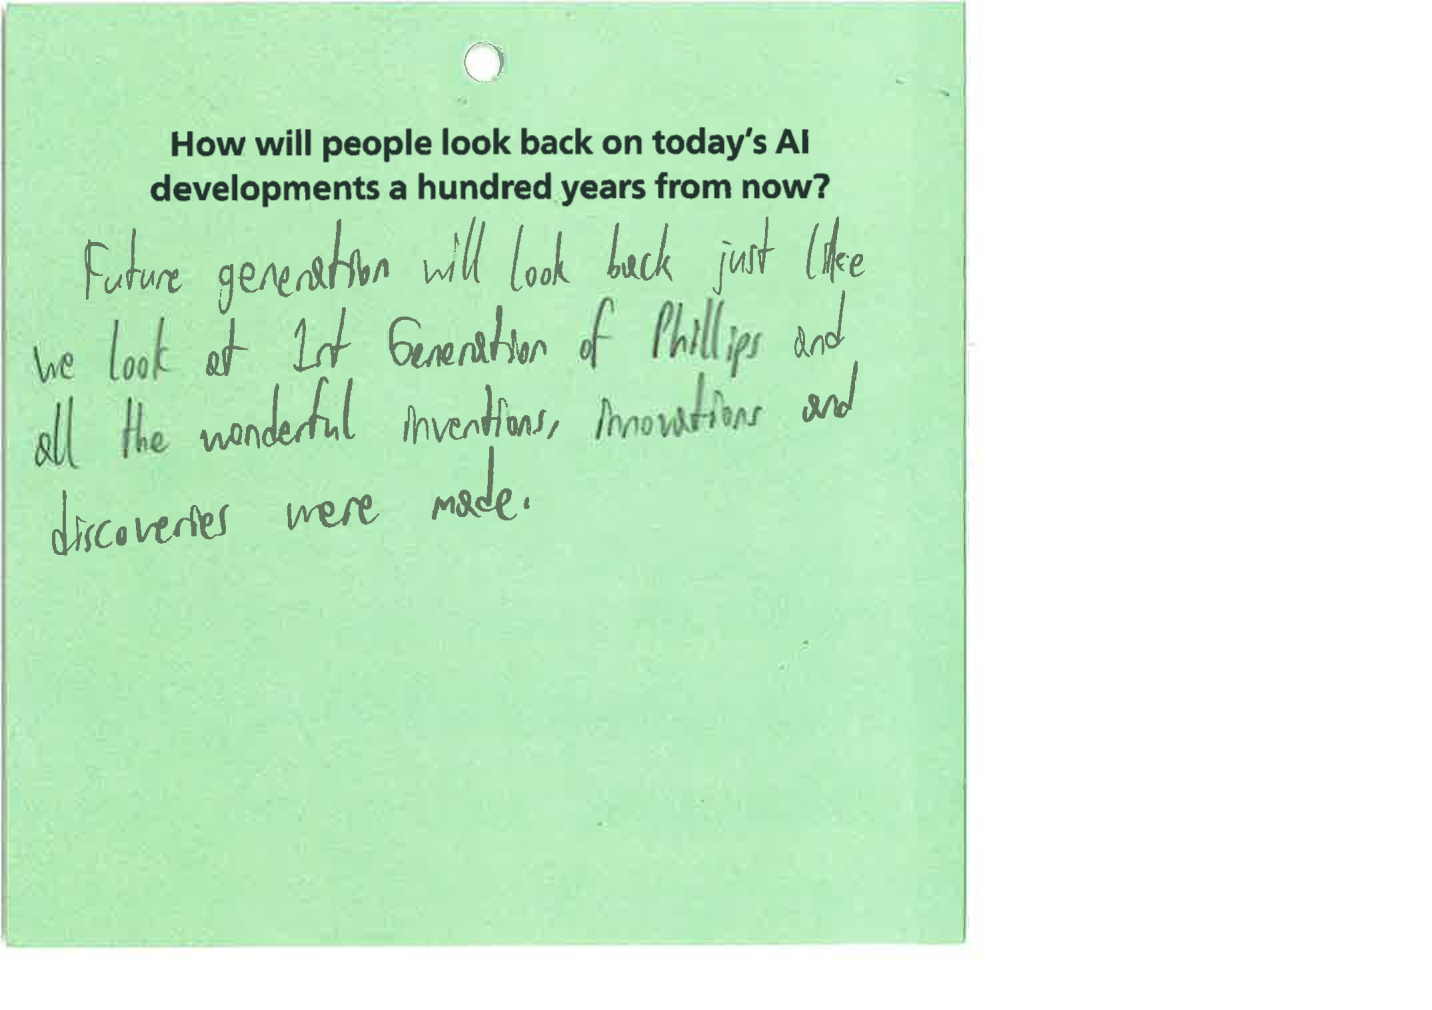 How will people look back on today's AI
developments a hundred years from now?
Future generation will look back just like
we look at 1st Generation of Phillips and
all the wonderful inventions, innovations and
discoveries were made.